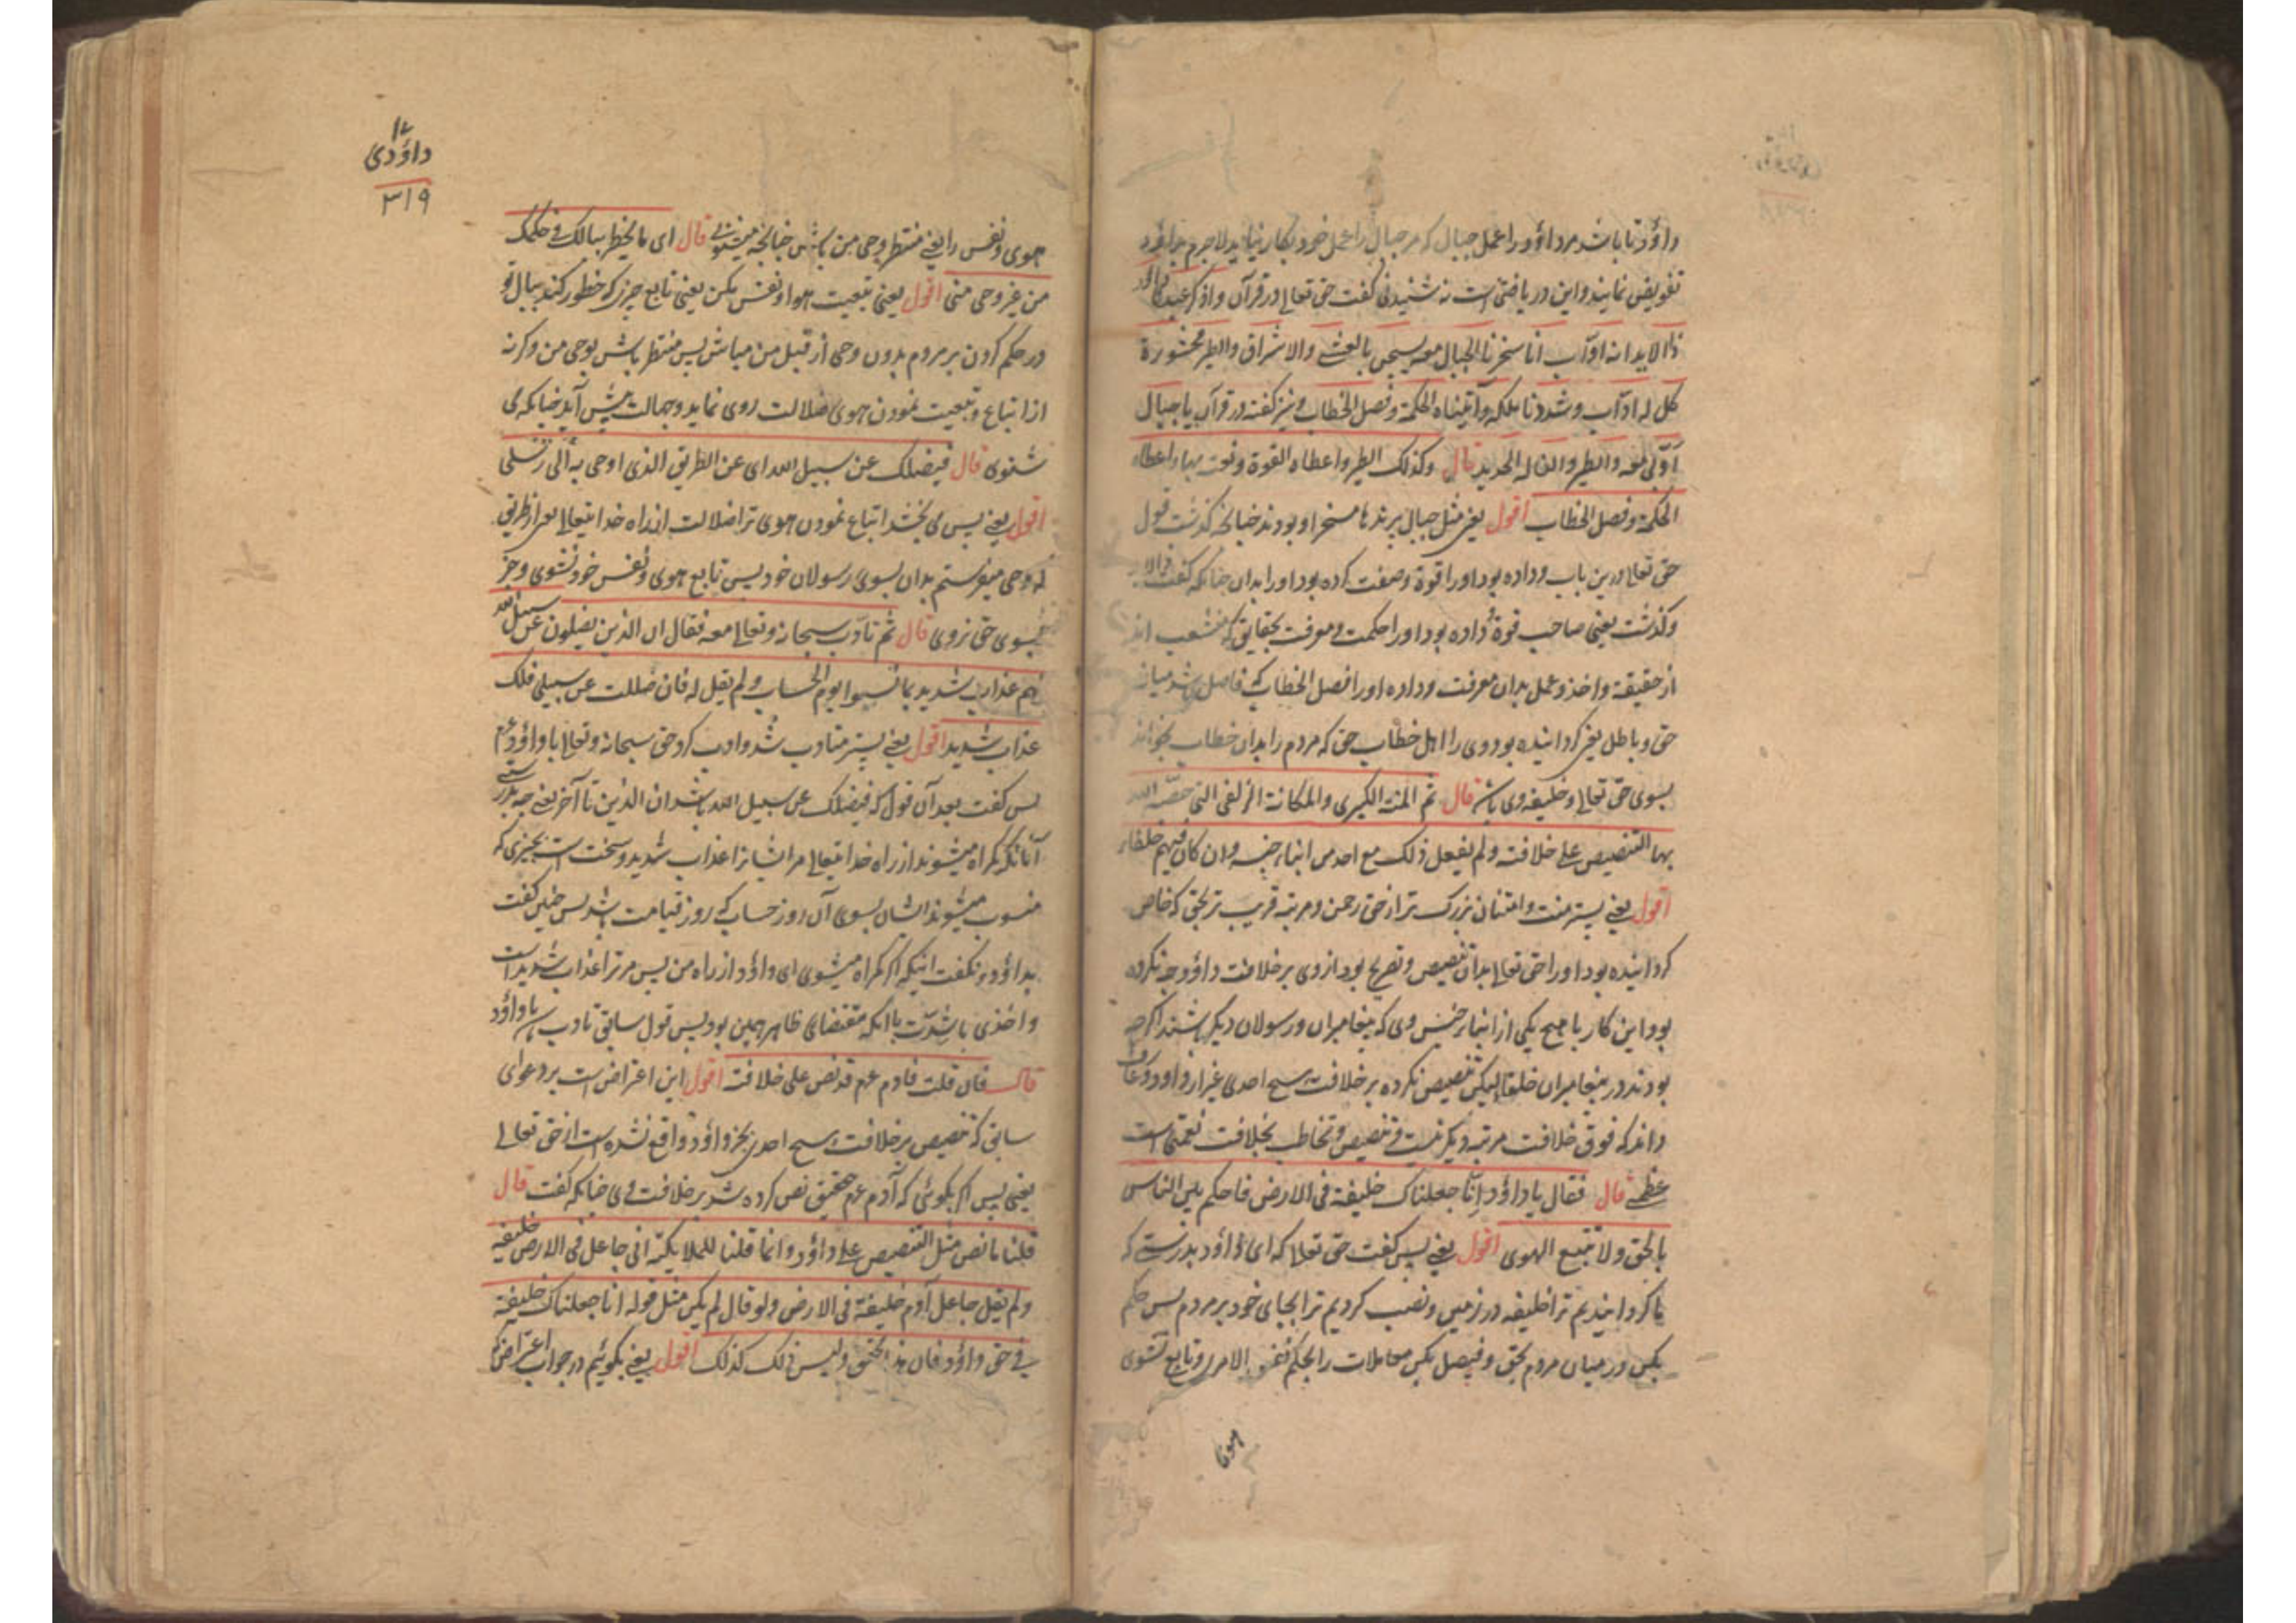 داؤد تا باشد مر داؤد را عمل جبال که مر جبال را عمل خود بکار نیاید لاجرم بداؤد
تفویض نمایند و این دریافتنی است نه شنیدنی گفت حق تعالی در قرآن و اذکر عبدنا داؤد
ذا الاید انه اوّاب انا سخرنا الجبال معه یسبحن بالعشی والاشراق والطیر محشورة
کل له اوّاب و شددنا ملکه و آتیناه الحکمة وفصل الخطاب و نیز گفته در قرآن یا جبال
اوّبی معه والطیر والنا له الحدید قال وکذلک الطیر واعطاه القوة ونعت بها واعطاه
الحکمة وفصل الخطاب اقول یعنی مثل جبال پرندها مسخر او بودند چنانچه گذشت قول
حق تعالی درین باب و داده بود او را قوة و صفت کرده بود او را بدان چنانکه گفت ذا الاید
و گذشت یعنی صاحب قوة و داده بود او را حکمت و معرفت بحقایق که منشعب اند
از حقیقة و اخذ و عمل بدان معرفت و داده او را فصل الخطاب که فاصل باشد میانه
حق و باطل یعنی گردانیده بود وی را اهل خطاب حق که مردم را بدان خطاب بخواند
بسوی حق تعالی و خلیفه وی باشد قال ثم المنة الکبری والمکانة الزلفی التی خصّه الله
بها التنصیص علی خلافته ولم یفعل ذلک مع احد من ابناء جنسه وان کان فیهم خلفاء
اقول یعنی پستر منت و امتنان بزرگ تر از حق رحمن و مرتبه قریب تر بحق که خاص
گردانیده بود او را حق تعالی بدان تنصیص و تصریح بود از وی بر خلافت داؤد و چه نکرده
بود این کار با هیچ یکی از ابناء جنس وی که پیغامبران و رسولان دیگر باشند اگرچه
بودند در پیغامبران خلفا لیکن تنصیص نکرده بر خلافت هیچ احدی غیر از داؤد و عارف
داند که فوق خلافت مرتبه دیگر نیست و تنصیص و تخاطب بخلافت نعمتی است
عظمی قال فقال یا داؤد انّا جعلناک خلیفة فی الارض فاحکم بین الناس
بالحق ولا تتبع الهوی اقول یعنی پس گفت حق تعالی که ای داؤد بدرستی که
ما گردانیدیم ترا خلیفه در زمین و نصب کردیم ترا بجای خود بر مردم پس حکم
بکن در میان مردم بحق و فیصل بکن معاملات را بحکم نفس الامر و تابع نشوی
هوی
۱۲
داؤدی
۳۱۹
هوی و نفس را یعنی منتظر وحی من باش چنانچه میشنوی قال ای ما یخطر ببالک فی حکمک
من غیر وحی منی اقول یعنی تبعیت هوا و نفس مکن یعنی تابع چیز که خطور کند ببال تو
در حکم کردن بر مردم بدون وحی از قبل من مباش پس منتظر باش بوحی من و گرنه
از اتباع و تبعیت نمودن هوی ضلالت روی نماید و جهالت پیش آید چنانکه می
شنوی قال فیضلک عن سبیل الله ای عن الطریق الذی اوحی به الی رسلی
اقول یعنی پس می بخشد اتباع نمودن هوی ترا ضلالت از راه خدایتعالی یعنی از طریق
که وحی میفرستم بدان بسوی رسولان خود پس تابع هوی و نفس خود نشوی و جز
بسوی حق نروی قال ثم تأدّب سبحانه وتعالی معه فقال ان الذین یضلون عن سبیل الله
لهم عذاب شدید بما نسوا یوم الحساب ولم یقل له فان ضللت عن سبیلی فلک
عذاب شدید اقول یعنی پستر متادب شد و ادب کرد حق سبحانه و تعالی با داؤد عم
پس گفت بعد آن قول که فیضلک عن سبیل الله باشد ان الذین تا آخر یعنی چه بدرستی
آنانکه گمراه میشوند از راه خدایتعالی مر ایشانرا عذاب شدید و سخت است بچیزی که
منسوب میشوند ایشان بسوی آن روز حساب که روز قیامت باشد پس چنین گفت
بداؤد و نگفت اینکه اگر گمراه میشوی ای داؤد از راه من پس مر ترا عذاب شدید است
و اخذی با شدّت با آنکه مقتضای ظاهر همین بود پس قول سابق تادب است با داؤد
قال فان قلت فآدم عم قد نص علی خلافته اقول این اعتراض است بر دعوای
سابق که تنصیص بر خلافت هیچ احدی بجز داؤد واقع نشده است از حق تعالی
یعنی پس اگر بگوئی که آدم عم تحقیق نص کرده شد بر خلافت وی چنانکه گفت قال
قلنا ما نص مثل التنصیص علی داؤد وانما قلنا للملایکة انی جاعل فی الارض خلیفة
ولم یقل جاعل آدم خلیفة فی الارض ولو قال لم یکن مثل قوله انا جعلناک خلیفة
فی حق داؤد فان هذا محقق ولیس ذلک کذلک اقول یعنی بگوئیم در جواب اعتراض